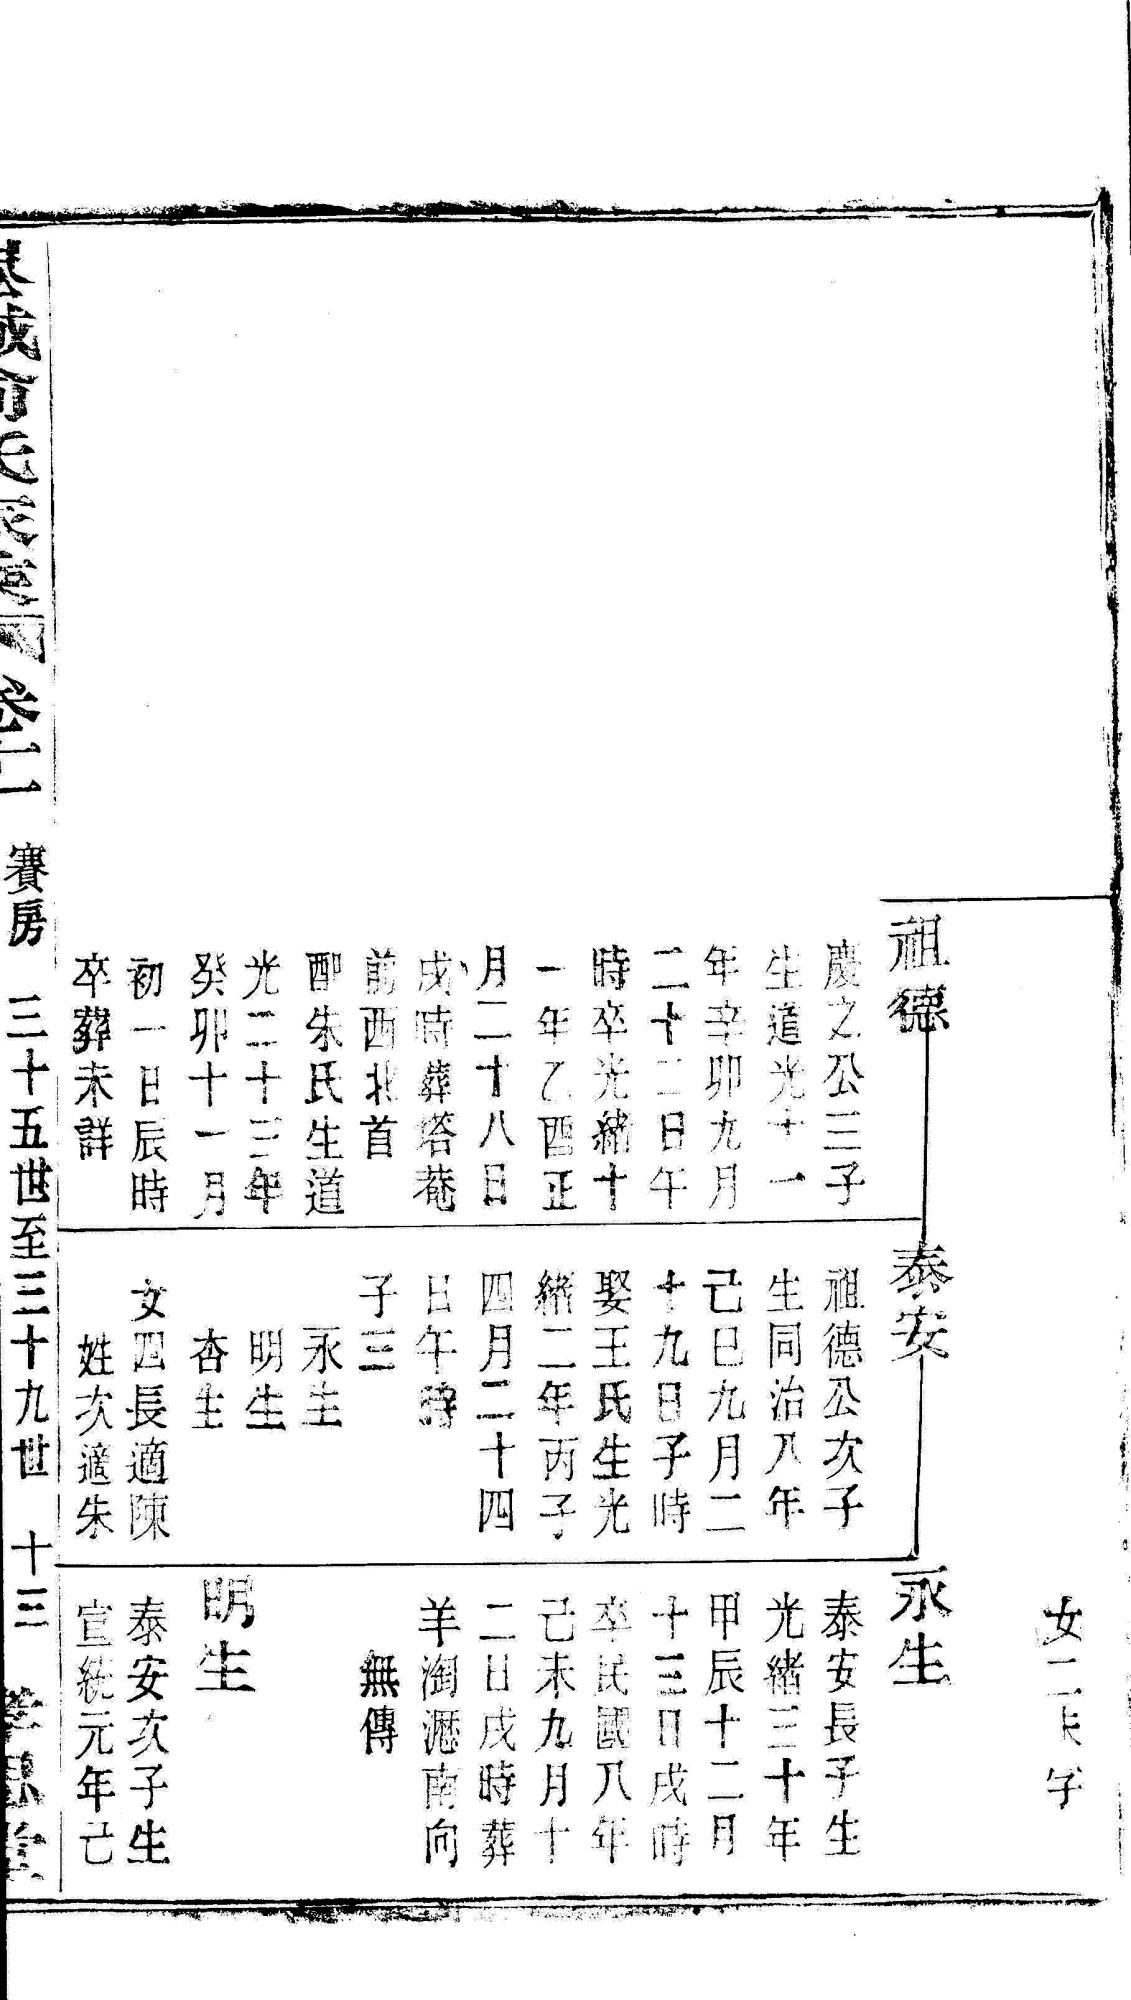 女二未字
祖德
慶之公三子
生道光十一
年辛卯九月
二十二日午
時卒光緒十
一年乙酉正
月二十八日
戌時葬塔菴
前西北首
配朱氏生道
光二十三年
癸卯十一月
初一日辰時
卒葬未詳
泰安
祖德公次子
生同治八年
己巳九月二
十九日子時
娶王氏生光
緒二年丙子
四月二十四
日午時
子三
永生
明生
杏生
女四長適陳
姓次適朱
永生
泰安長子生
光緒三十年
甲辰十二月
十三日戌時
卒民國八年
己未九月十
二日戌時葬
羊淘瀝南向
無傳
明生
泰安次子生
宣統元年己
氏 卷十一 賽房 三十五世至三十九世 十三 孝思堂